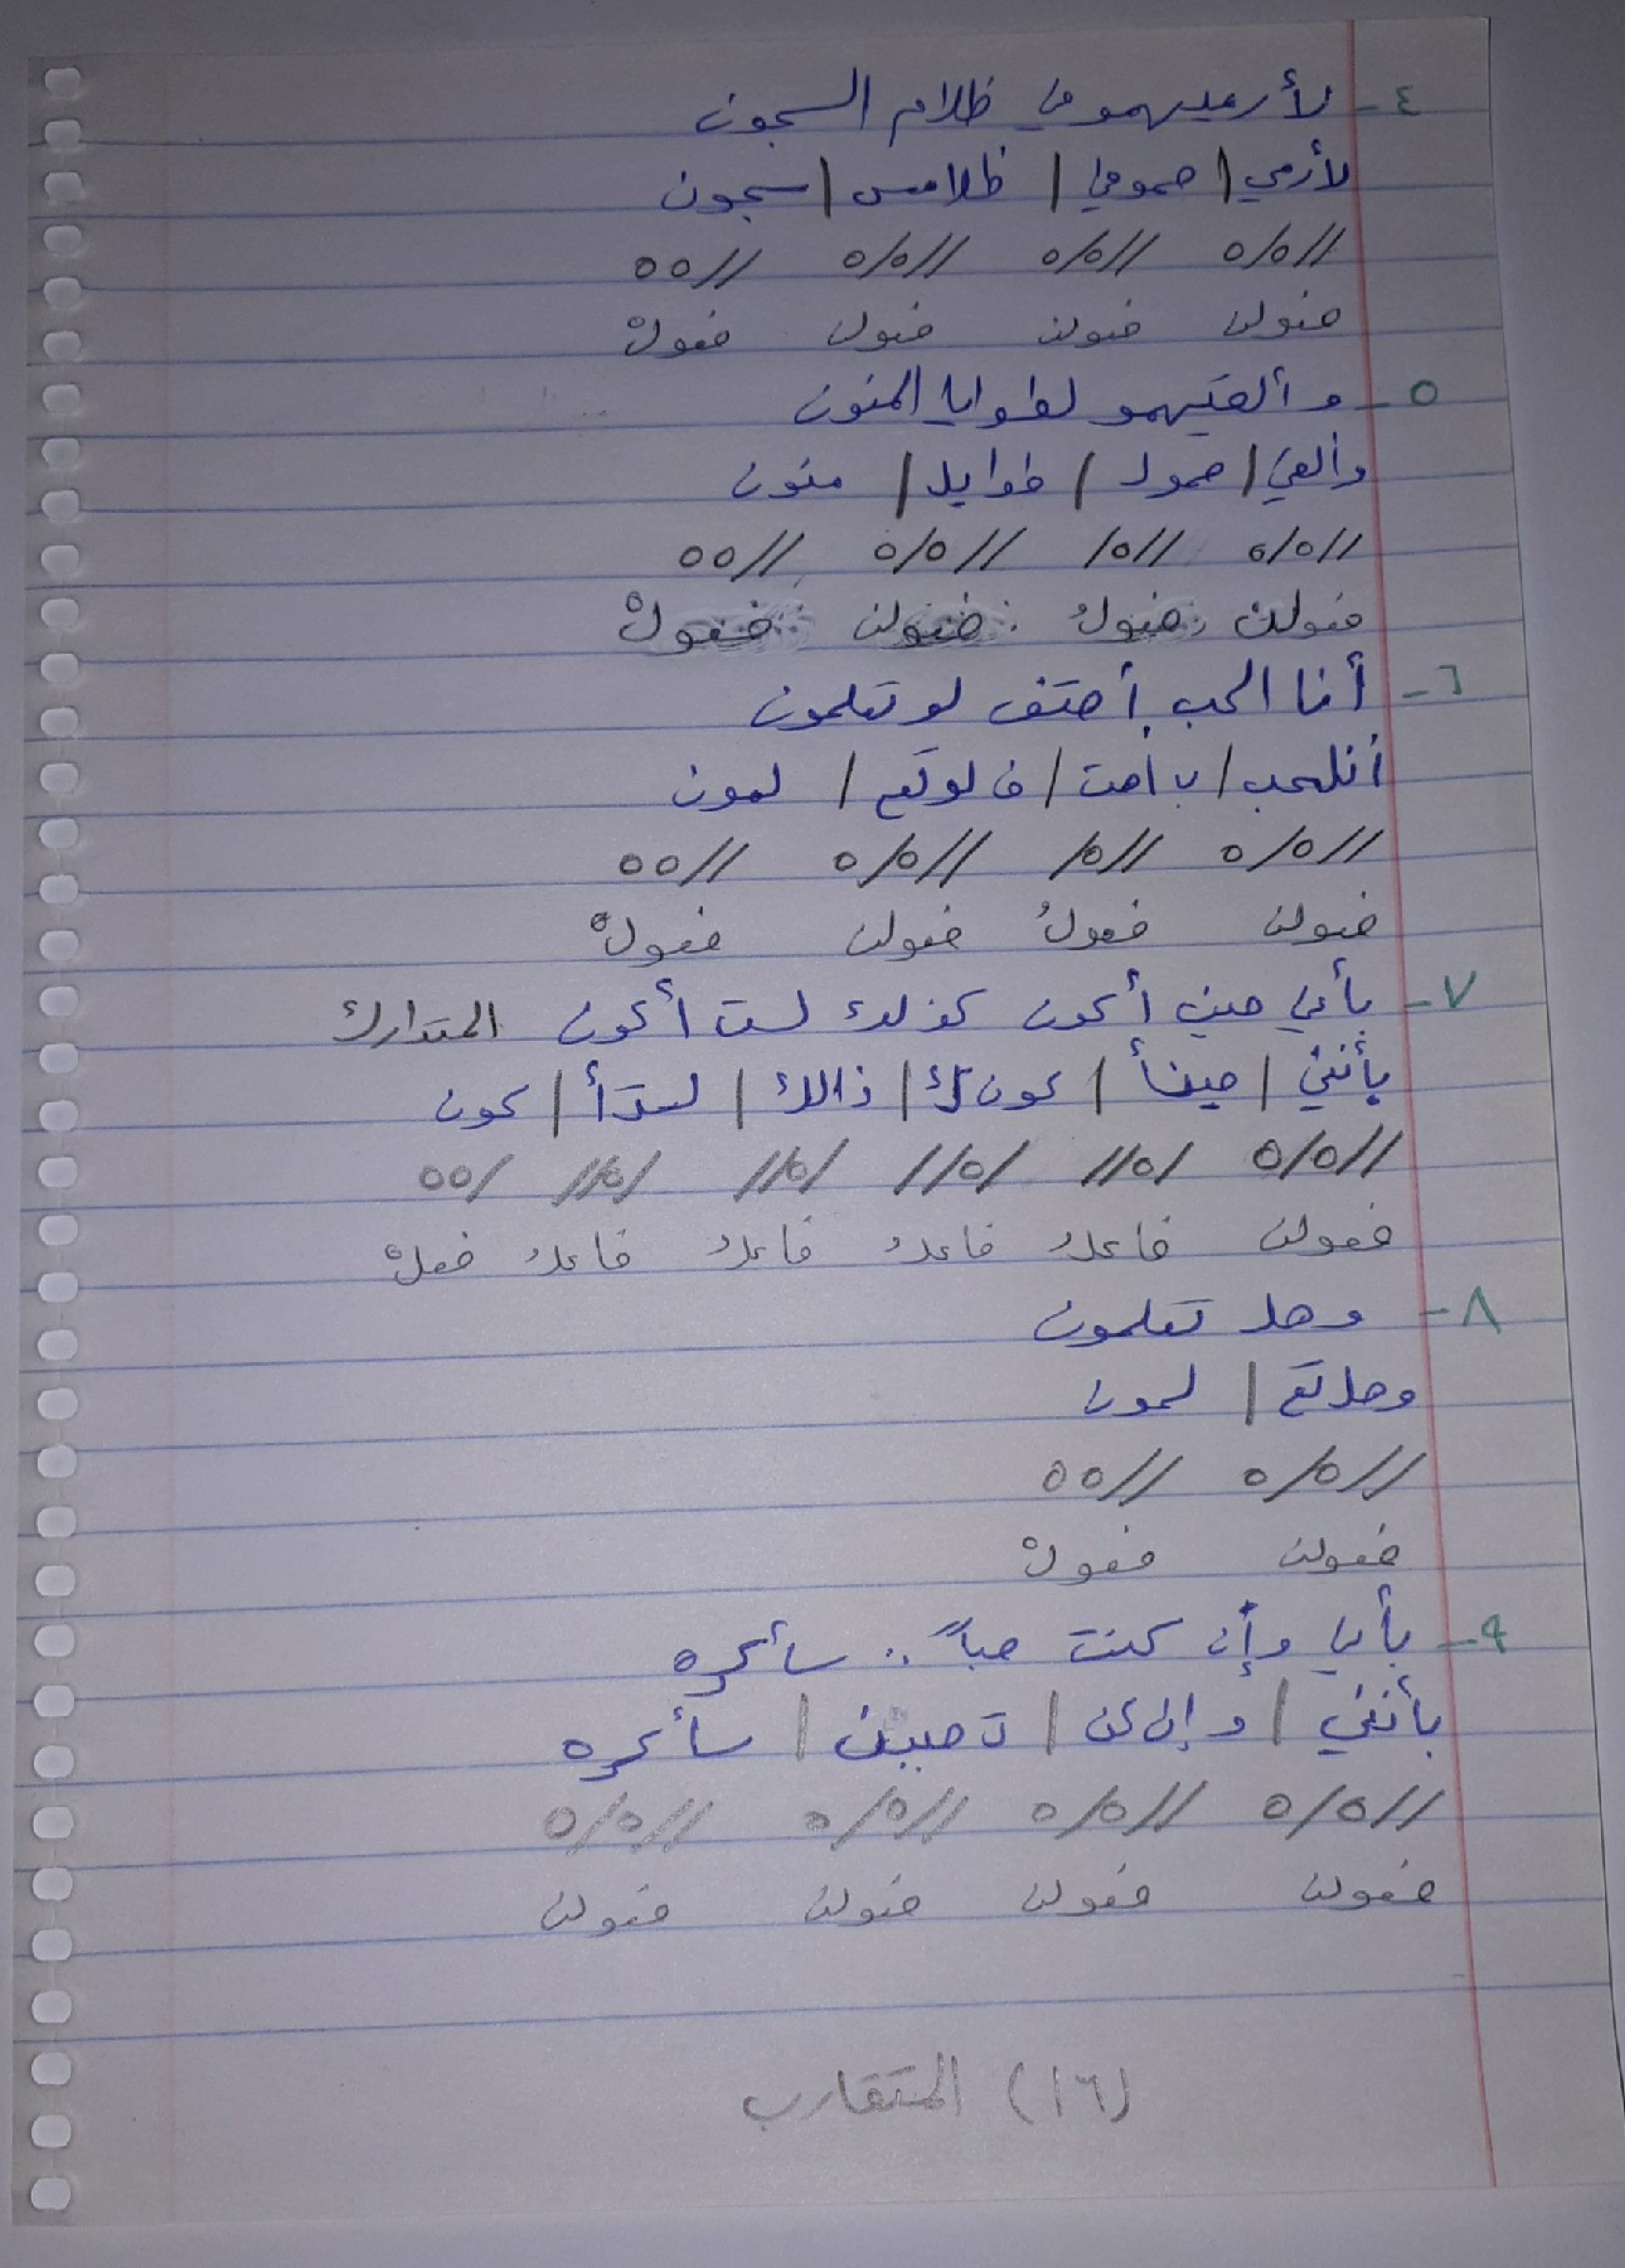 ٤- لأرميهمو في ظلام السجون
لأرمي | هموفي | ظلامس | سجون
//٥/٥ //٥/٥ //٥/٥ //٥٥
فعولن فعولن فعولن فعولْ
٥- وألقيهمو لطوايا المنون
وألقي | همول | طوايل | منون
//٥/٥ //٥/ //٥/٥ //٥٥
فعولن فعولُ فعولن فعولْ
٦- أنا الحب أهتف لو تعلمون
أنلحب | بأهت | ف لوتع | لمون
//٥/٥ //٥/ //٥/٥ //٥٥
فعولن فعولُ فعولن فعولْ
٧- بأني حين أكون كذلك لست أكون المتدارك
بأنني | حينأ | كون ك | ذالك | لستأ | كون
//٥/٥ /٥// /٥// /٥// /٥// /٥٥
فعولن فاعلُ فاعلُ فاعلُ فاعلُ فعلْ
٨- وهل تعلمون
وهل تع | لمون
//٥/٥ //٥٥
فعولن فعولْ
٩- بأني وإن كنت حباً .. سأكره
بأنني | وإن كن | ت حببن | سأكره
//٥/٥ //٥/٥ //٥/٥ //٥/٥
فعولن فعولن فعولن فعولن
(١٦) المتقارب